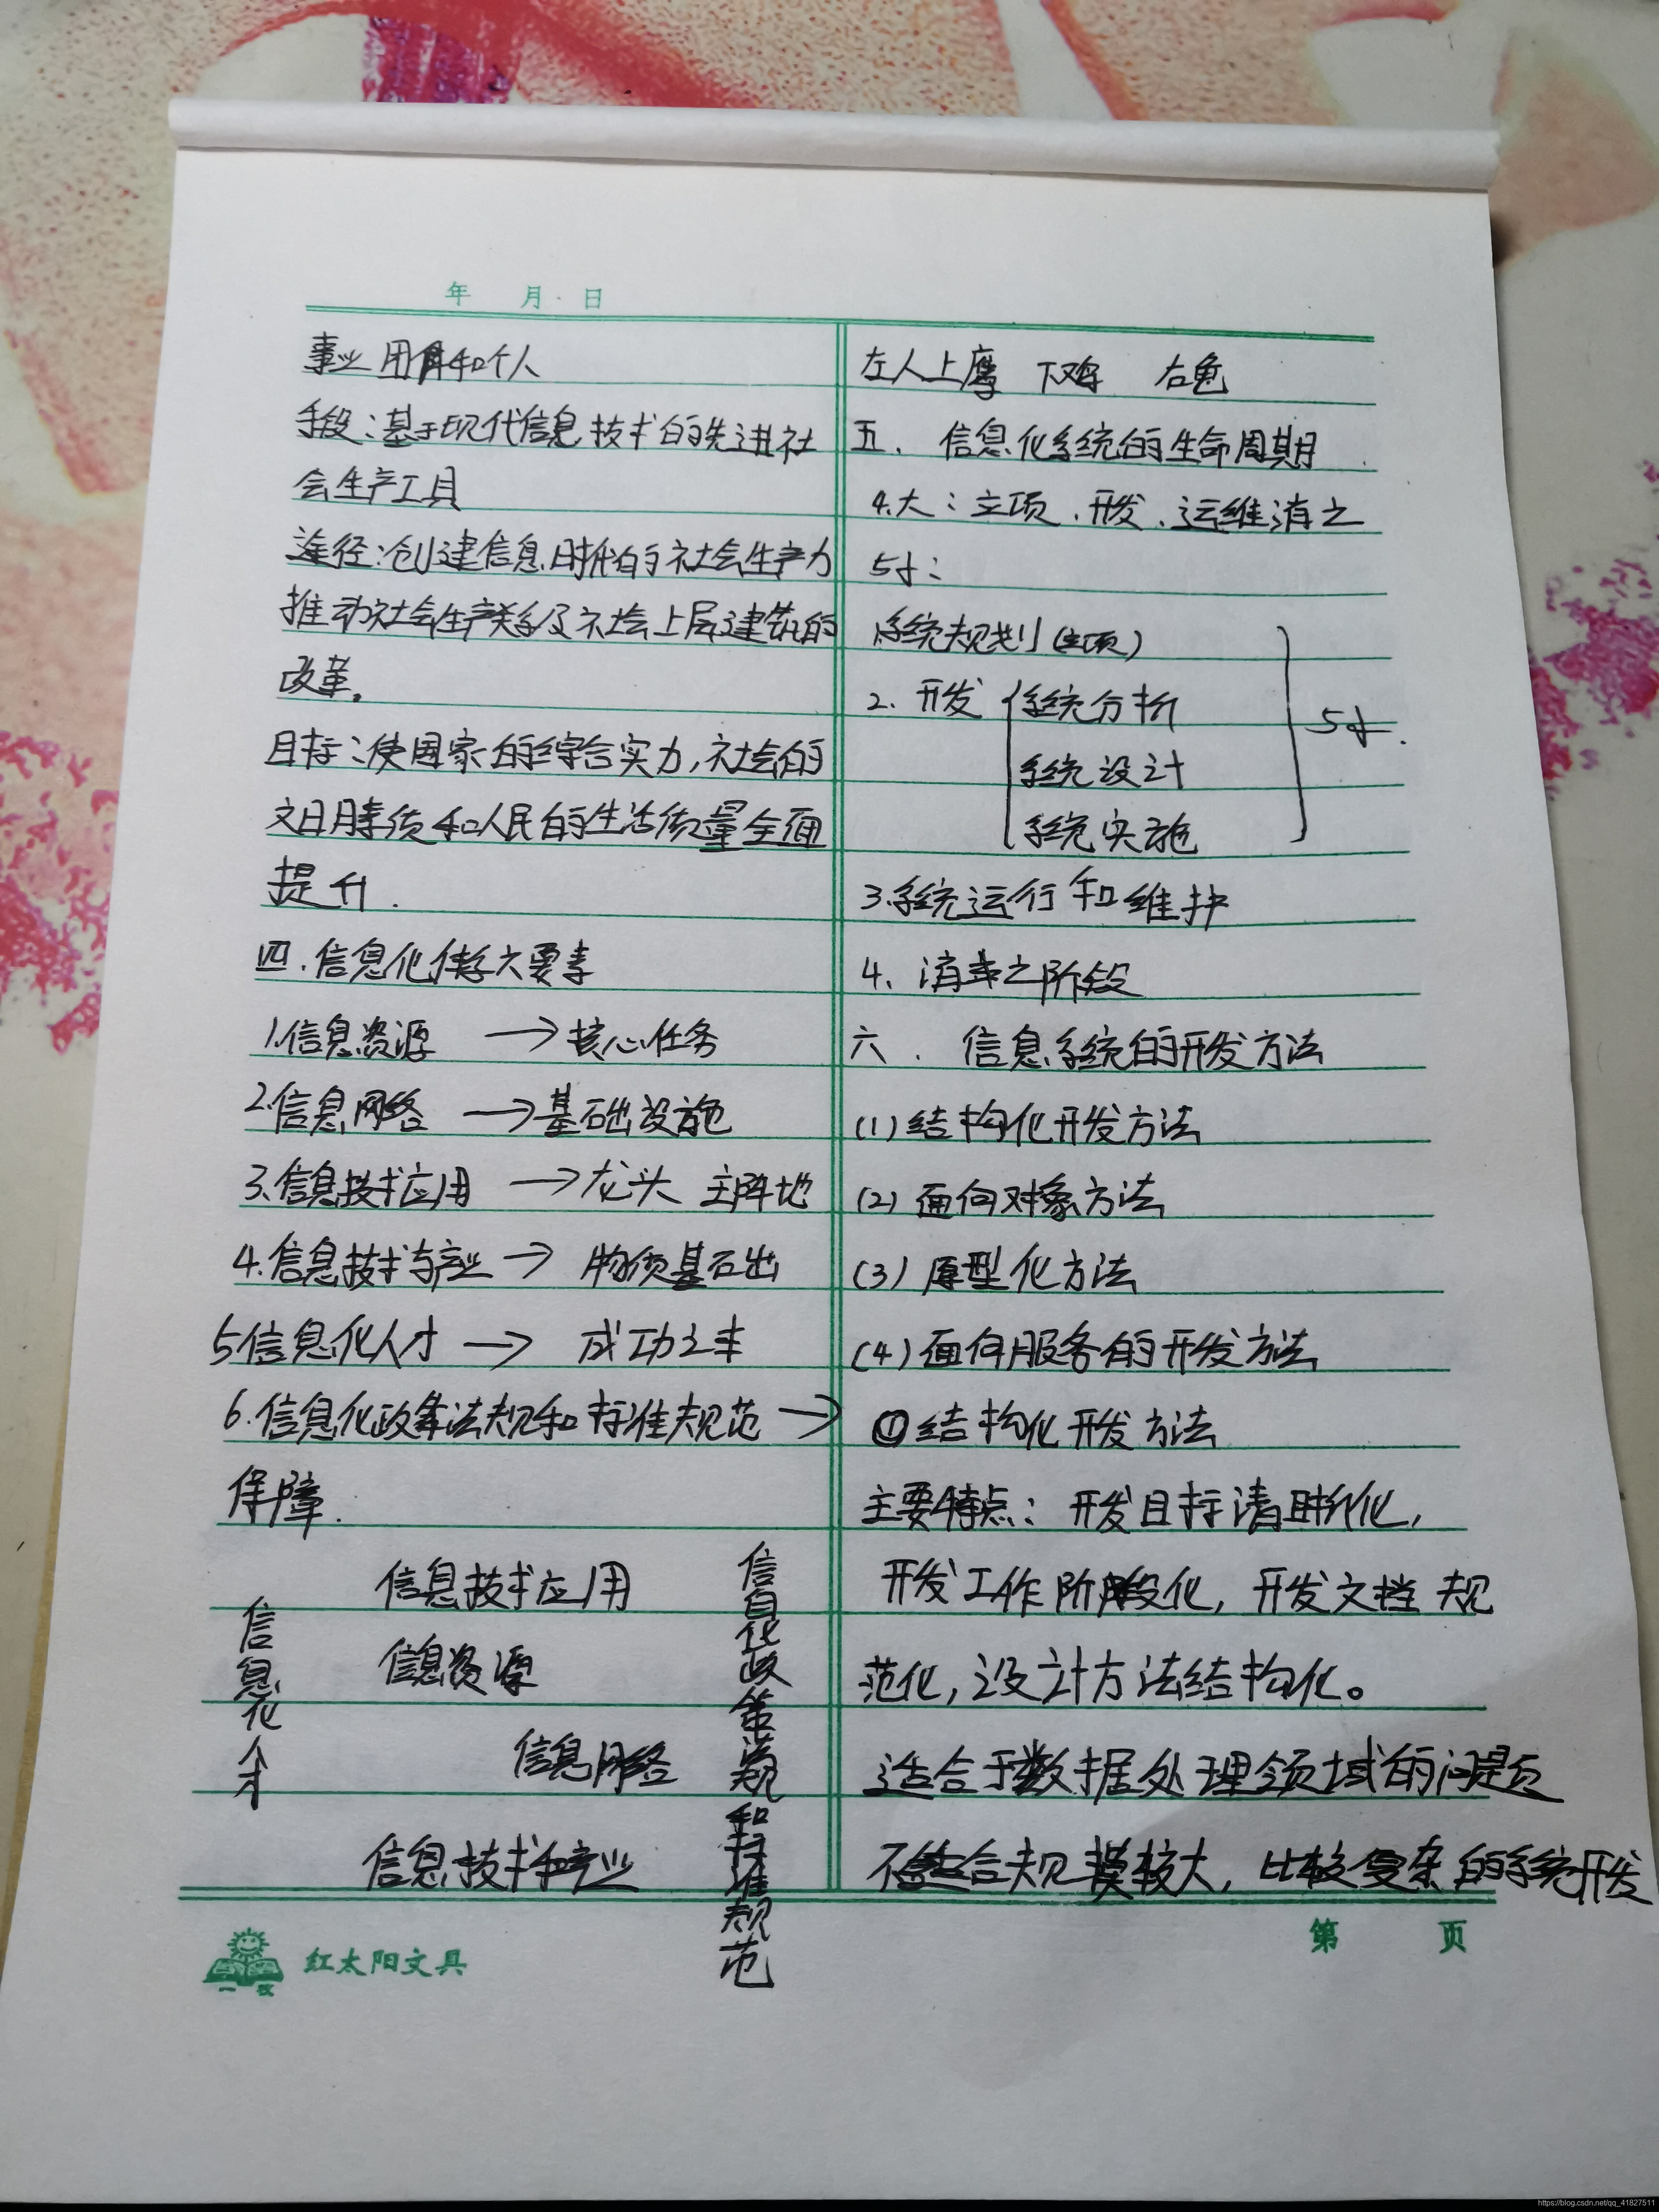 年 月 日
事业 团体和个人
手段：基于现代信息技术的先进社
会生产工具
途径：创建信息时代的社会生产力
推动社会生产关系及社会上层建筑的
改革。
目标：使国家的综合实力，社会的
文明素质和人民的生活质量全面
提升.
四.信息化体系六要素
1.信息资源 → 核心任务
2.信息网络 → 基础设施
3.信息技术应用 → 龙头 主阵地
4.信息技术与产业 → 物质基础
5信息化人才 → 成功之本
6.信息化政策法规和标准规范 →
保障.
信息技术应用
信息资源
信息网络
信息技术和产业
信息化人才
信息化政策法规和标准规范
左人上鹰 下鸡 右龟
五. 信息化系统的生命周期
4.大：立项.开发.运维消亡
5小：
系统规划（立项）
2. 开发 系统分析
系统设计
系统实施
5小.
3.系统运行和维护
4. 消亡阶段
六. 信息系统的开发方法
(1) 结构化开发方法
(2) 面向对象方法
(3) 原型化方法
(4) 面向服务的开发方法
①结构化开发方法
主要特点：开发目标清晰化，
开发工作阶段化，开发文档 规
范化，设计方法结构化。
适合于数据处理领域的问题
不适合规模较大，比较复杂的系统开发
红太阳文具
第 页
https://blog.csdn.net/qq_41827511